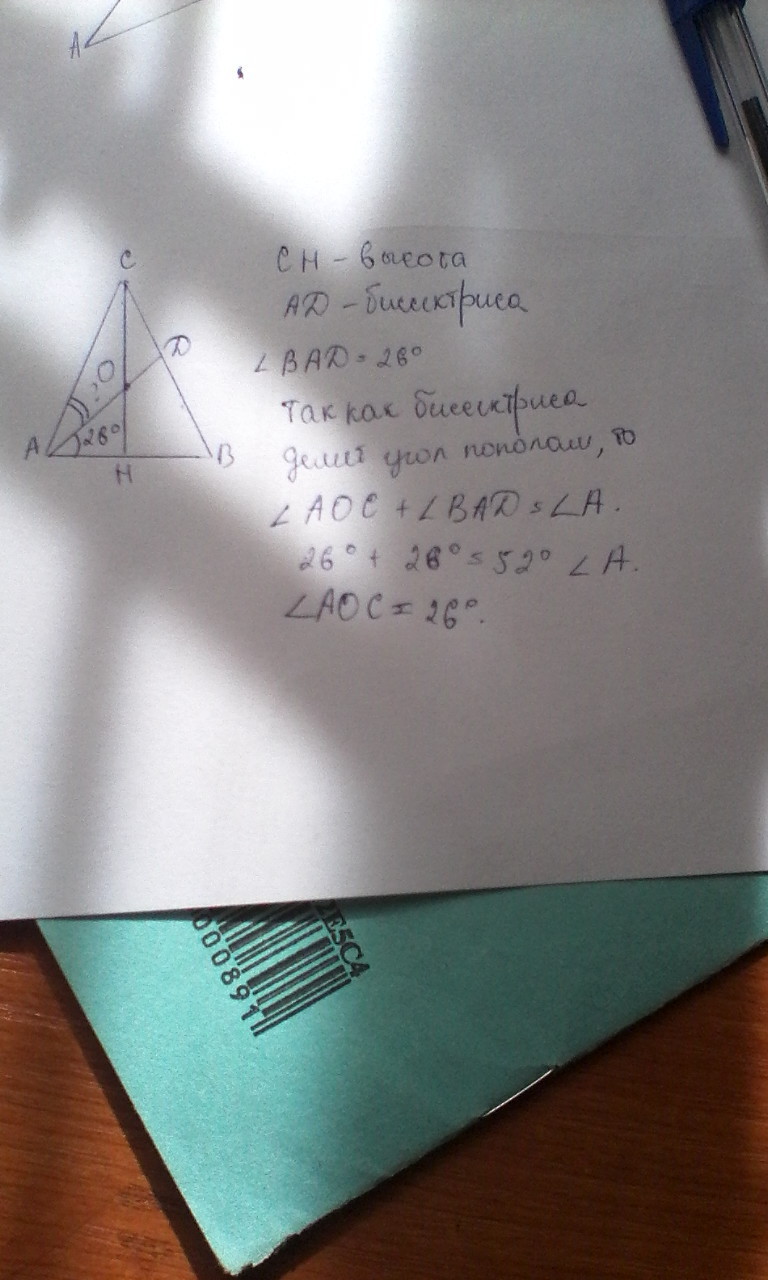 A
C
D
O
?
26°
A
H
B
CH – высота
AD – биссектриса
∠BAD = 26°
Так как биссектриса
делит угол пополам, то
∠AOC + ∠BAD = ∠A.
26° + 26° = 52° ∠A.
∠AOC = 26°.
E5C4
000891